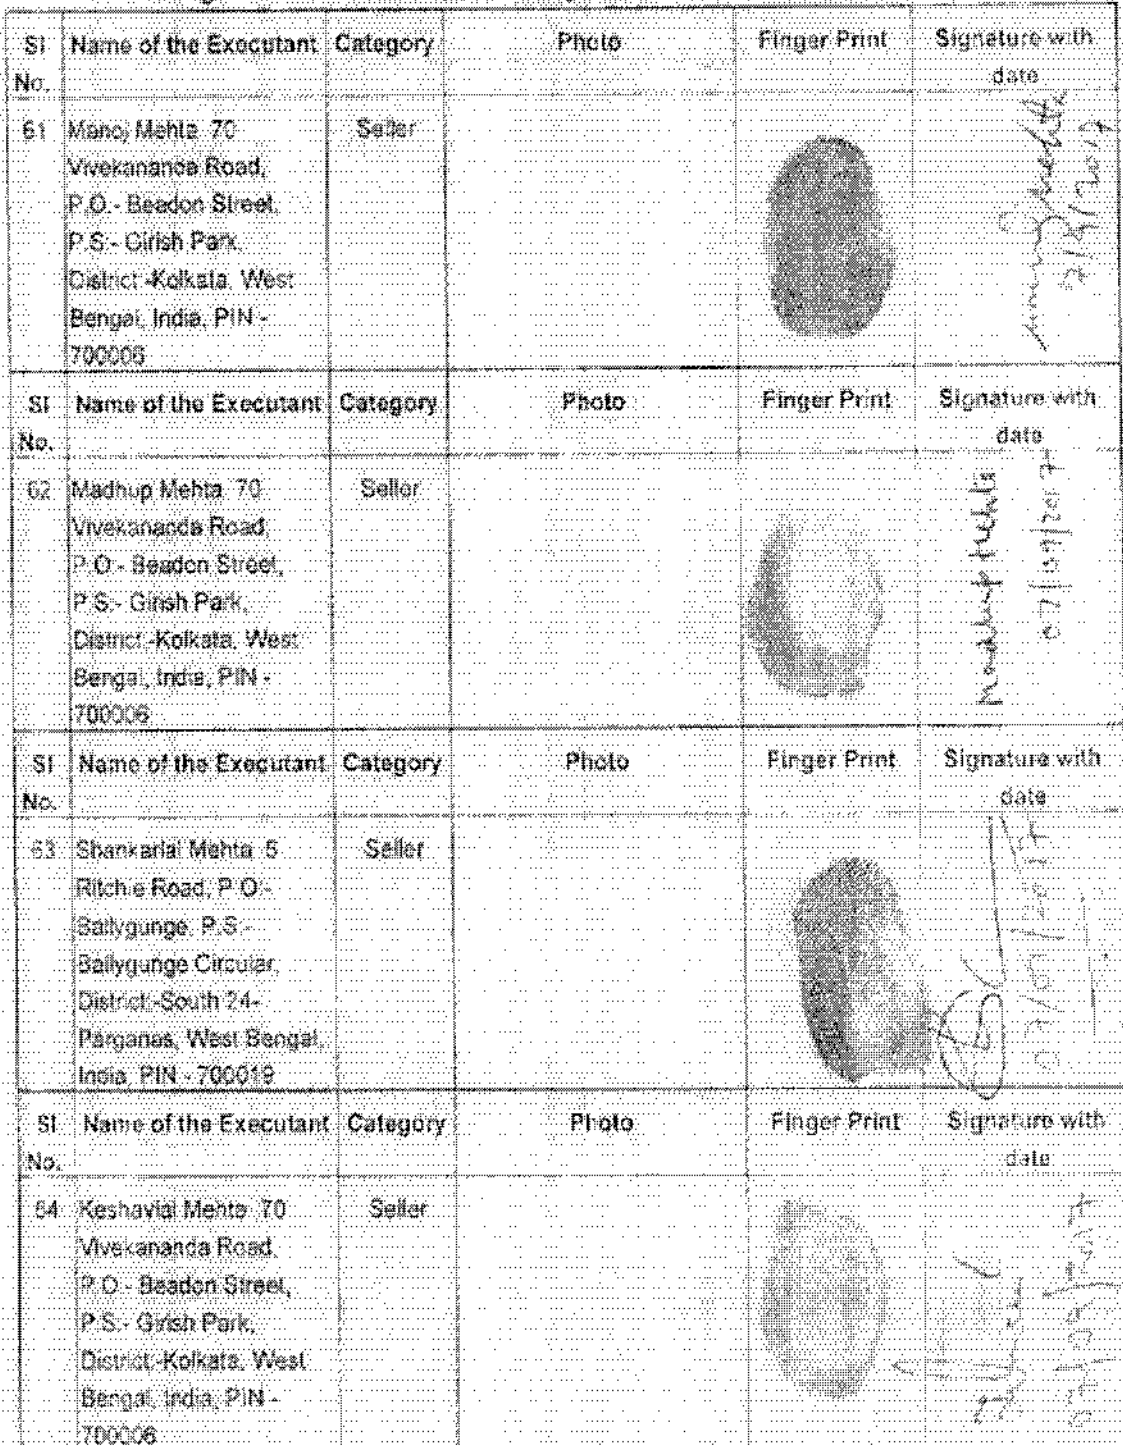 Sl No. Name of the Executant Category Photo Finger Print Signature with date
61 Manoj Mehta 70 Seller
Vivekananda Road,
P.O.- Beadon Street,
P.S:- Girish Park,
District:-Kolkata, West
Bengal, India, PIN -
700006
Manoj Mehta
7/9/2017
Sl No. Name of the Executant Category Photo Finger Print Signature with date
62 Madhup Mehta 70 Seller
Vivekananda Road,
P.O:- Beadon Street,
P.S:- Girish Park,
District:-Kolkata, West
Bengal, India, PIN -
700006
Madhup Mehta
07/09/2017
Sl No. Name of the Executant Category Photo Finger Print Signature with date
63 Shankarlal Mehta 5 Seller
Ritchie Road, P.O:-
Ballygunge, P.S:-
Ballygunge Circular,
District:-South 24-
Parganas, West Bengal,
India, PIN - 700019
07/09/2017
Sl No. Name of the Executant Category Photo Finger Print Signature with date
64 Keshavlal Mehta 70 Seller
Vivekananda Road,
P.O:- Beadon Street,
P.S:- Girish Park,
District:-Kolkata, West
Bengal, India, PIN -
700006